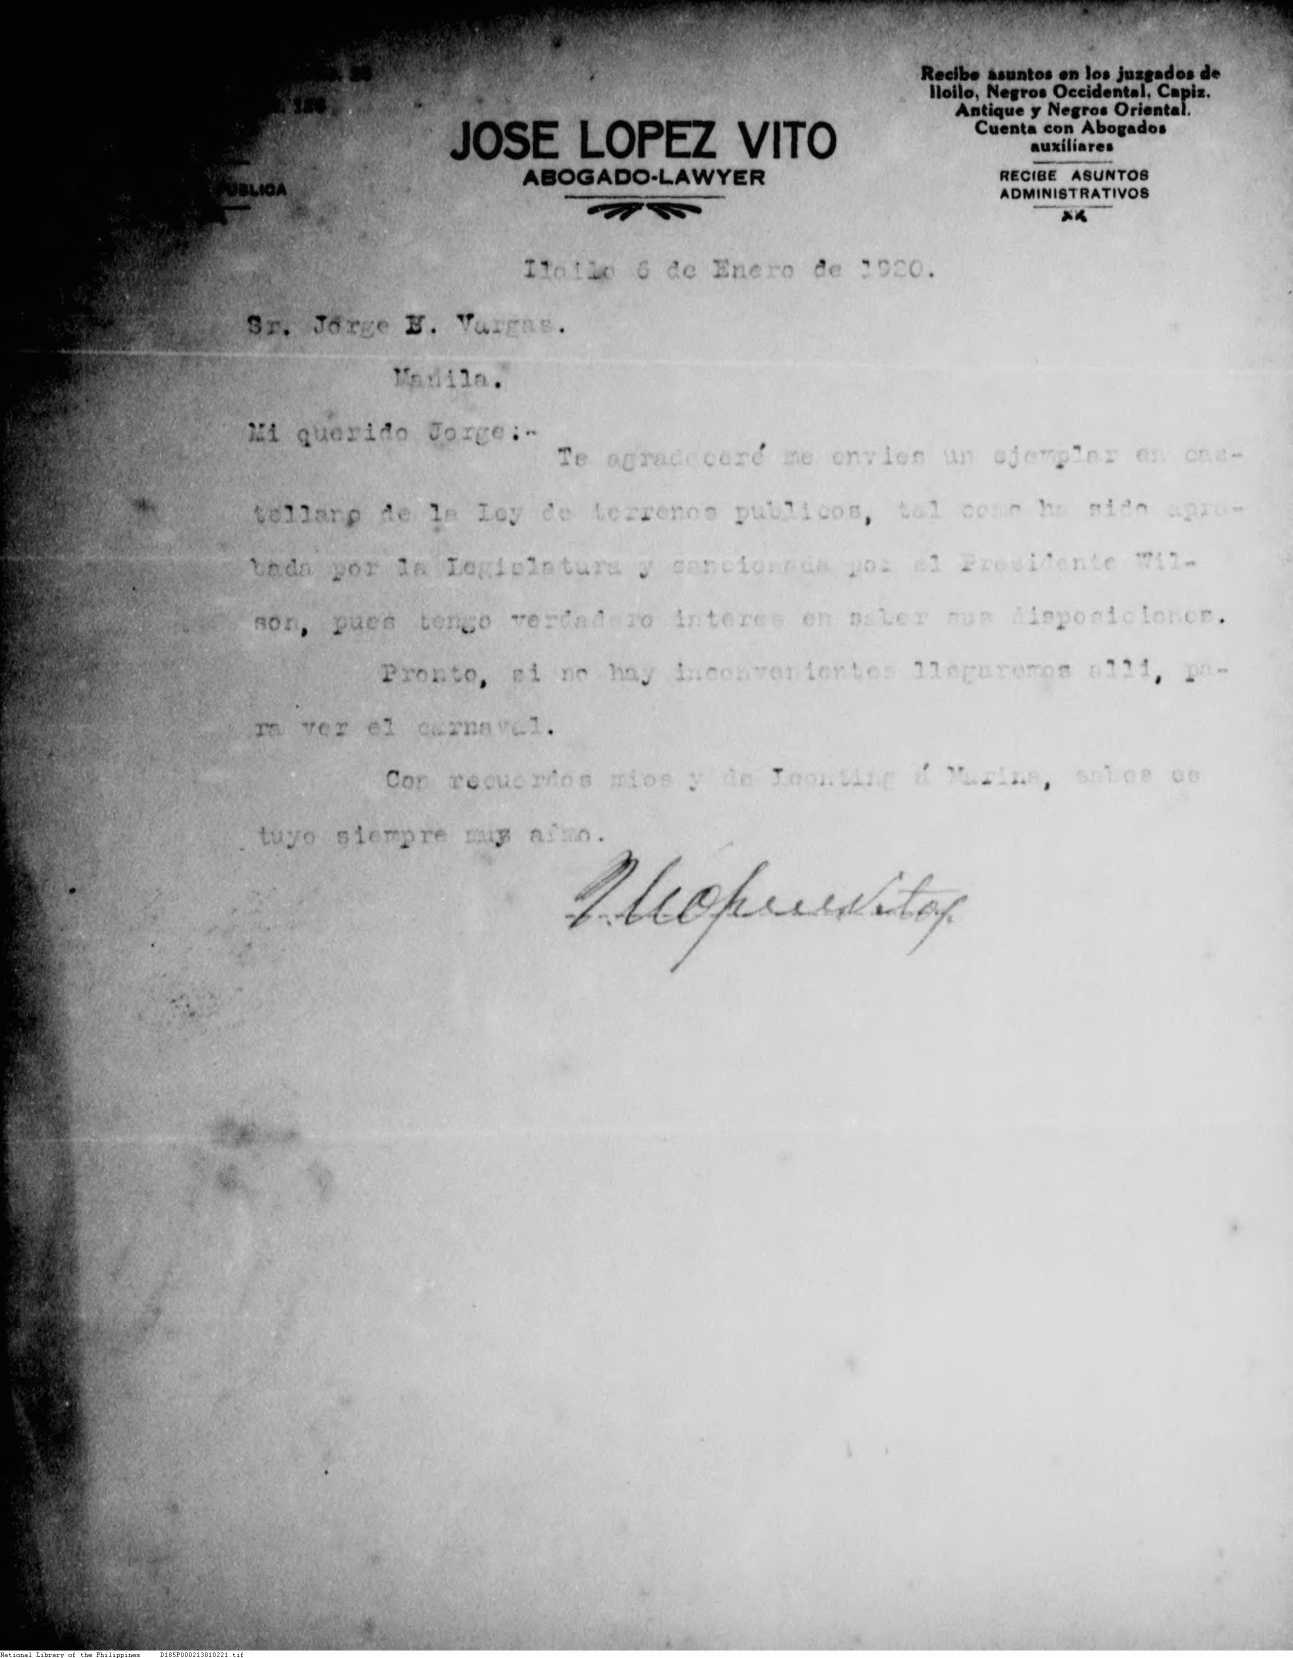 JOSE LOPEZ VITO
ABOGADO-LAWYER
Recibe asuntos en los juzgados de
Iloilo, Negros Occidental, Capiz.
Antique y Negros Oriental.
Cuenta con Abogados
auxiliares
RECIBE ASUNTOS
ADMINISTRATIVOS
Iloilo 6 de Enero de 1920.
Sr. Jorge B. Vargas.
Manila.
Mi querido Jorge:-
Te agradeceré me envies un ejemplar en cas-
tellano de la Ley de terrenos publicos, tal como ha sido apro-
bada por la Legislatura y sancionada por el Presidente Wil-
son, pues tengo verdadero interes en saber sus disposiciones.
Pronto, si no hay inconvenientes llegaremos alli, pa-
ra ver el carnaval.
Con recuerdos mios y de Leonting á Marina, sabes es
tuyo siempre muy afmo.
National Library of the Philippines D185P000213810221.tif